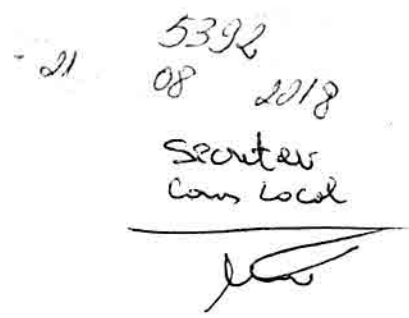 5392
21 08 2018
Secretar
Cons Local